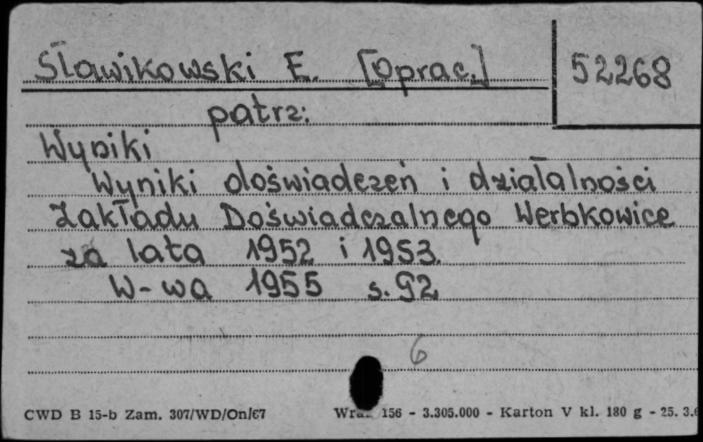 Sławikowski E. [Oprac.] 52268
patrz:
Wyniki
Wyniki doświadczeń i działalności
Zakładu Doświadczalnego Werbkowice
za lata 1952 i 1953.
W-wa 1955 s. 92
6
CWD B 15-b Zam. 307/WD/On/67 156 - 3.305.000 - Karton V kl. 180 g - 25. 3.6